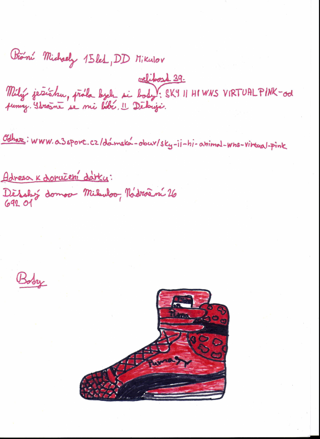 Přání Michaely 15 let, DD Mikulov
velikost 39.
Milý ježíšku, přála bych si boby: SKY II HI WNS VIRTUAL PINK-od
pumy. Strašně se mi líbí. !! Děkuji.
Odkaz: www.a3sport.cz/dámská-obuv/sky-ii-hi-animal-wns-virtual-pink
Adresa k doručení dárku:
Dětský domov Mikulov, Nádražní 26
692 01
Boby
Puma